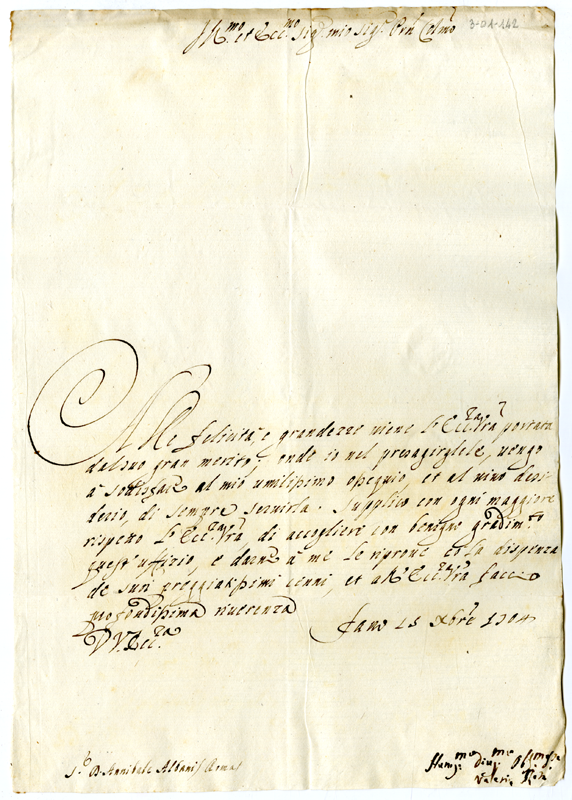 Ill.mo et Ecc.mo Sig.r mio Sig.r Pr͠on Colmo
3-01-142
Alle felicità, e grandezze viene l'Ecc.za V͠ra portata
dal suo gran merito, onde io nel presagirglele, vengo
à sodisfare al mio umilissimo ossequio, et al vivo desi-
derio, di sempre servirla. Supplico con ogni maggiore
rispetto l'Ecc.za V͠ra di accogliere con benigno gradim.to
quest'uffizio, e darne à me le riprove et la dispenza
de suoi preggiatissimi cenni, et all'Ecc.za V͠ra faccio
profondissima riverenza
D V. Ecc.za
Fano 15 Xbre 1704
S.r D. Annibale Albani Roma
Hum.mo Div.mo Obl.mo
Valerio